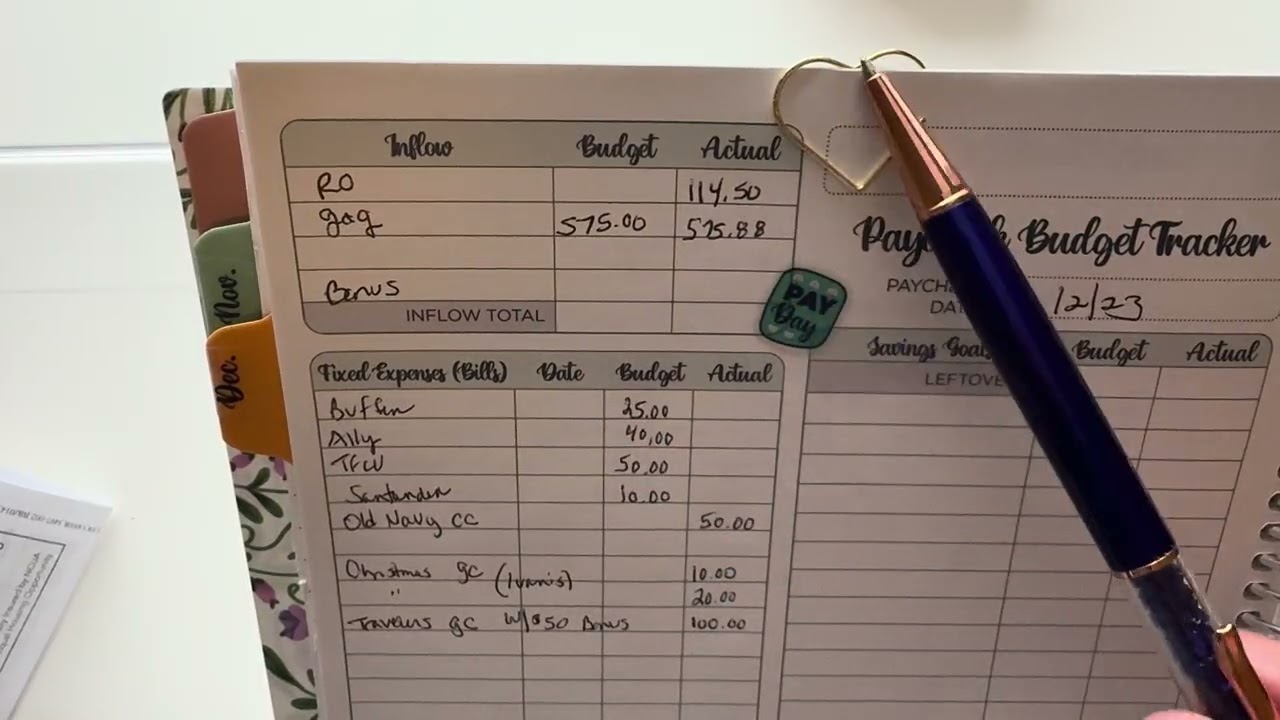 Inflow Budget Actual
RO 114.50
gag 575.00 575.88
Bonus
INFLOW TOTAL
PAY Day
Budget Tracker
12/23
Fixed Expenses (Bills) Date Budget Actual
Buffer 25.00
Ally 40.00
TFCU 50.00
Santander 10.00
Old Navy CC 50.00
Christmas gc 10.00
" 20.00
Travelers gc W/$50 Bonus 100.00
Savings Budget Actual
Nov.
Dec.